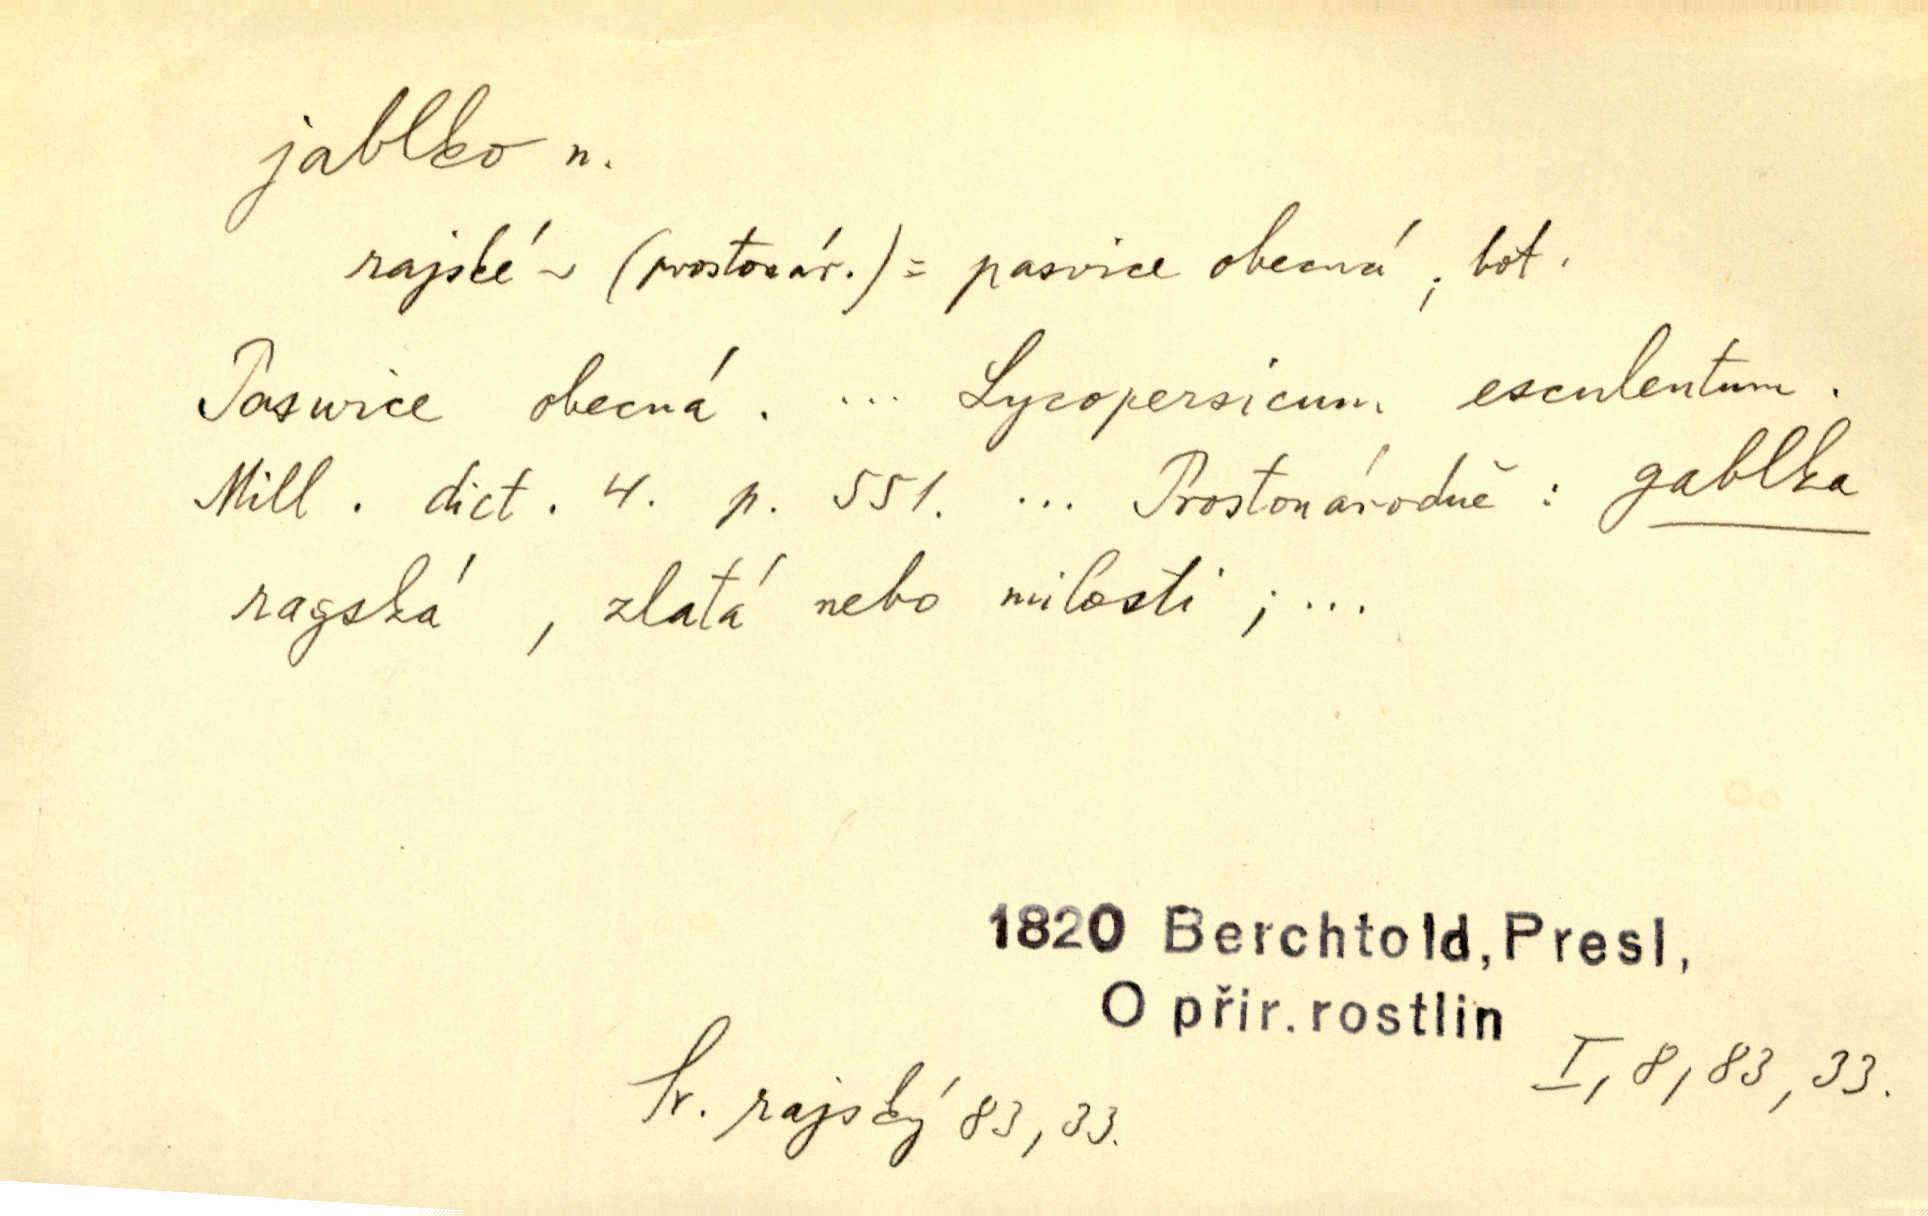 jablko n.
rajské ~ (prostonár.) = pasvice obecná ; bot.
Paswice obecná . ... Lycopersicum esculentum .
Mill . dict . 4. p. 551. ... Prostonárodně : gablka
ragská , zlatá nebo milosti ; ...
1820 Berchtold, Presl,
O přir. rostlin
I, 8, 83, 33.
Sr. rajský 83, 33.